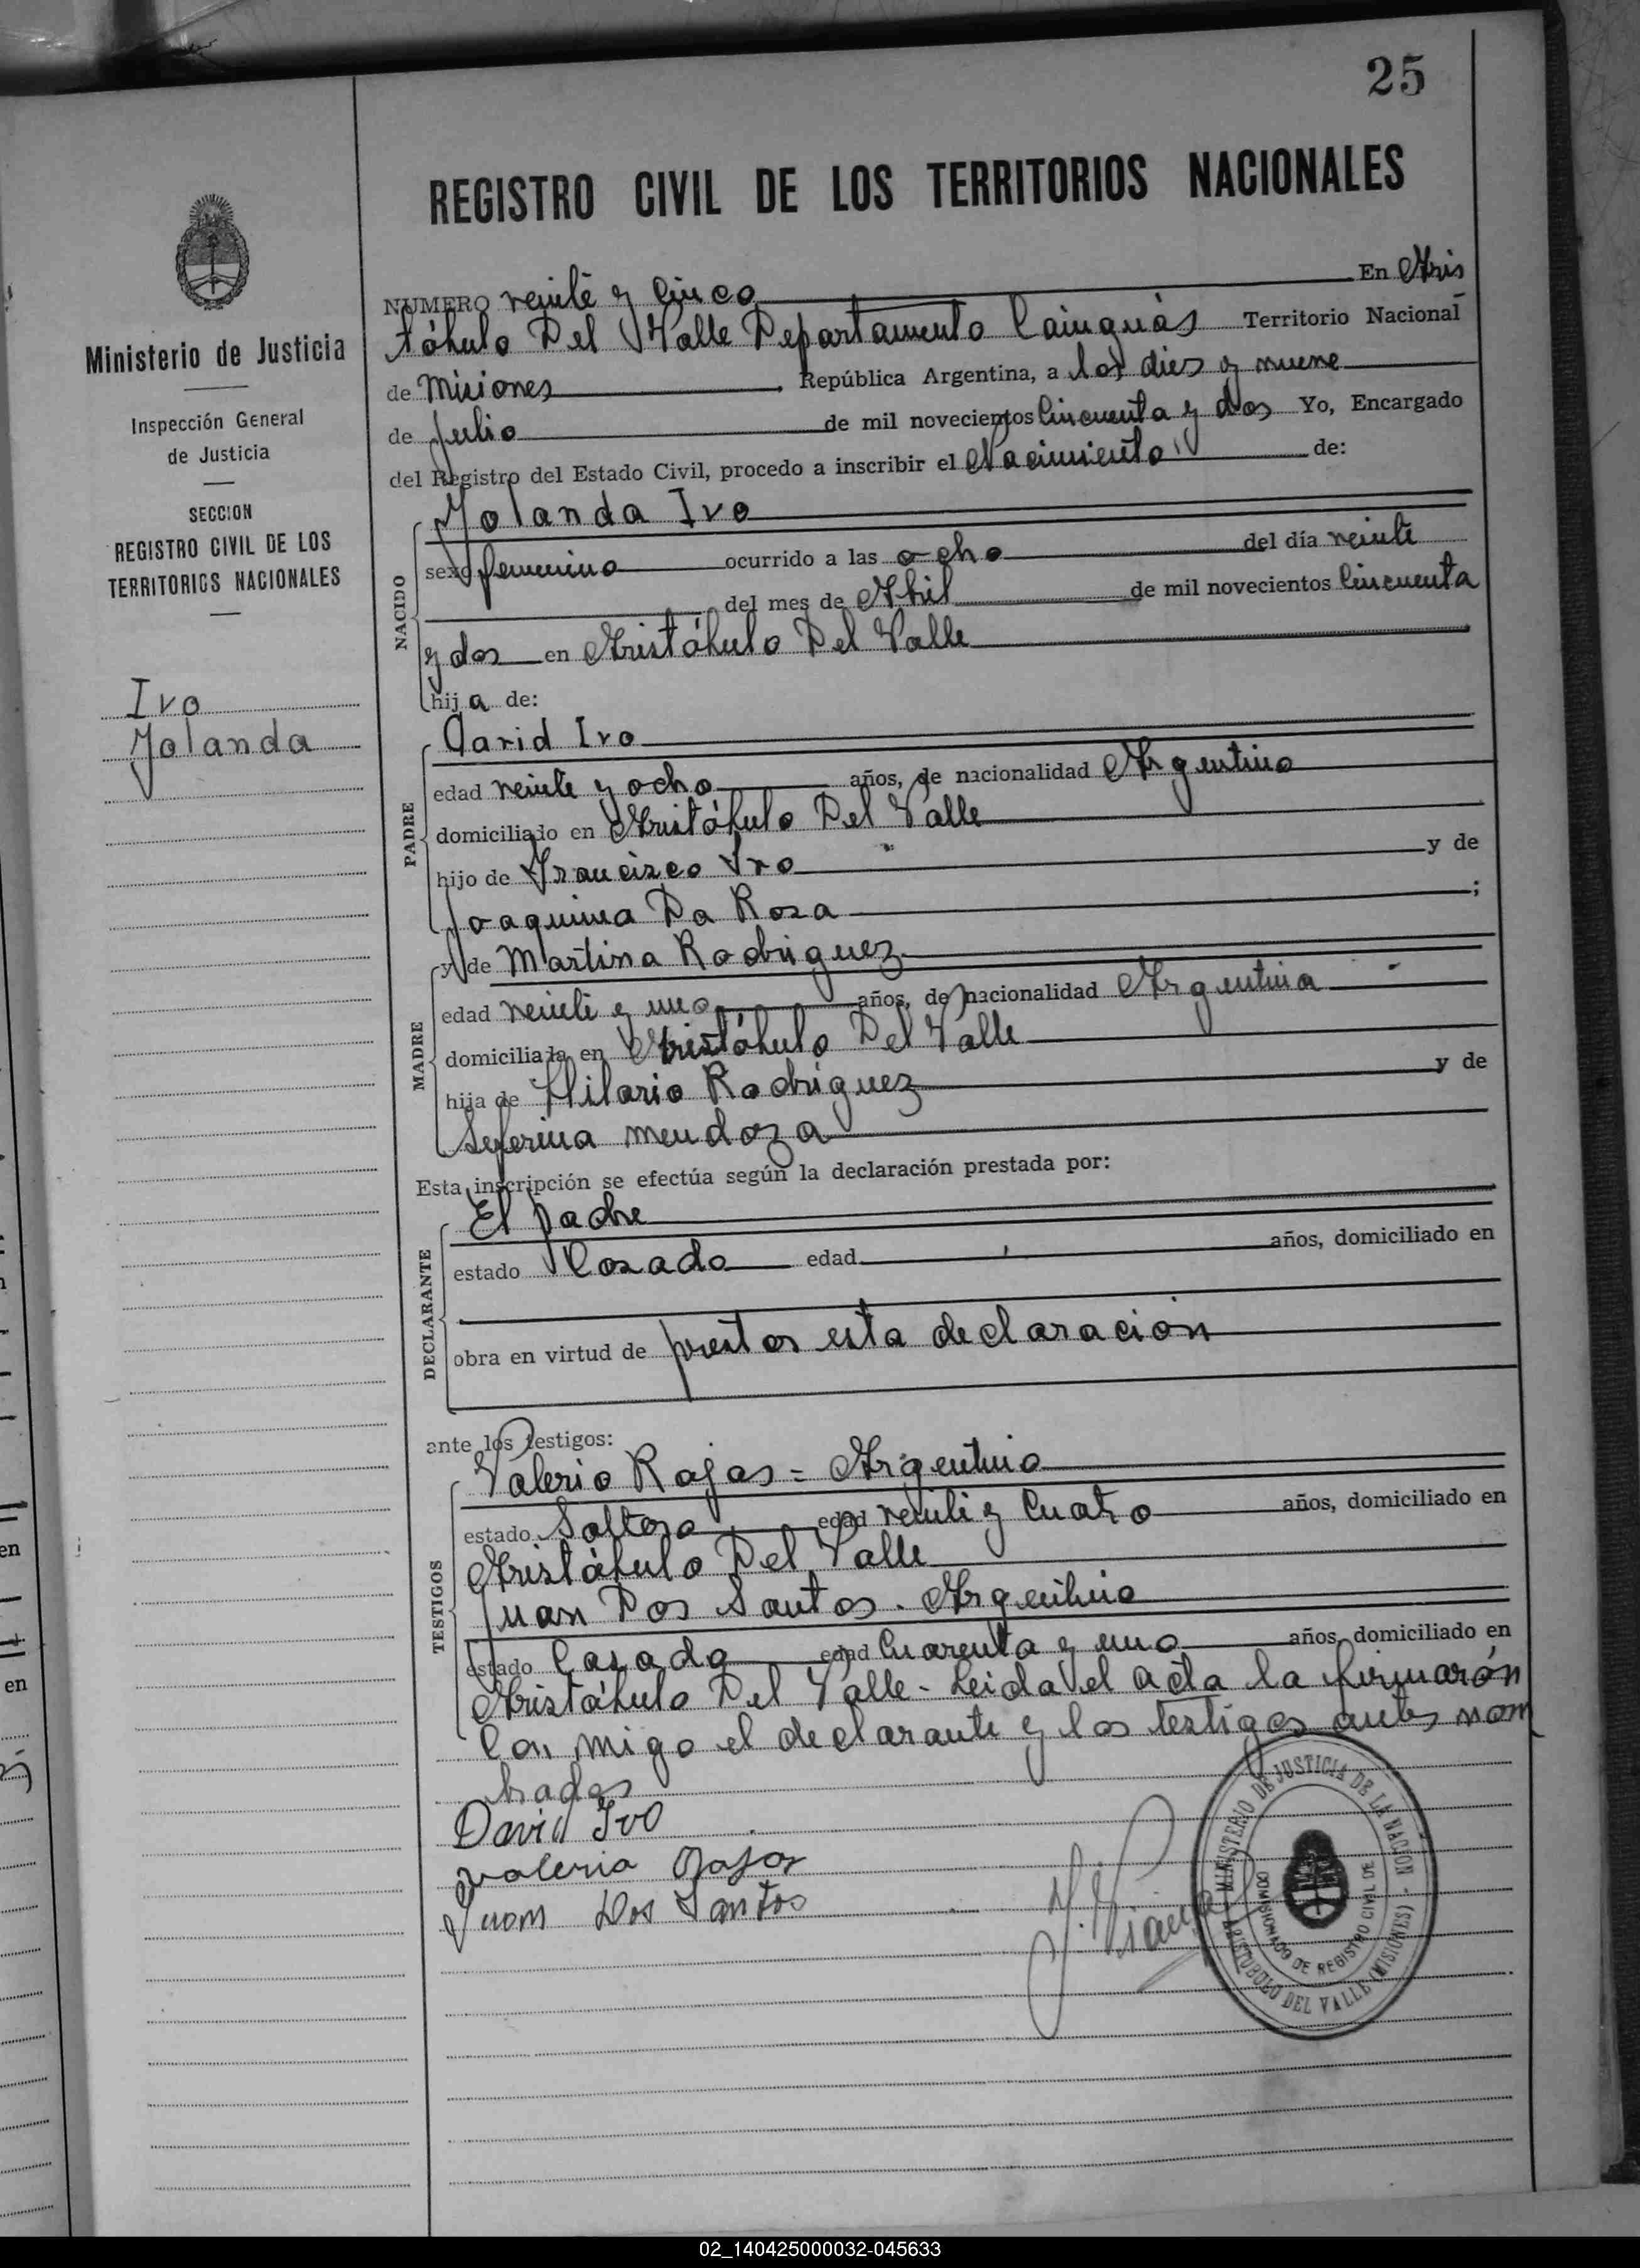 25
REGISTRO CIVIL DE LOS TERRITORIOS NACIONALES
Ministerio de Justicia
Inspección General
de Justicia
SECCION
REGISTRO CIVIL DE LOS
TERRITORIOS NACIONALES
Ivo
Yolanda
NUMERO veinte y cinco En Aris
tóbulo Del Valle Departamento Cainguás Territorio Nacional
de Misiones, República Argentina, a los dies y nueve
de julio de mil novecientos Cincuenta y dos Yo, Encargado
del Registro del Estado Civil, procedo a inscribir el Nacimiento de:
NACIDO
Yolanda Ivo
sexo femenino ocurrido a las ocho del día veinte
del mes de Abril de mil novecientos Cincuenta
y dos en Aristóbulo Del Valle
hija de:
PADRE
David Ivo
edad veinte y ocho años, de nacionalidad Argentino
domiciliado en Aristóbulo Del Valle
hijo de Francisco Ivo y de
Joaquina Da Rosa ;
MADRE
y de Martina Rodriguez
edad veinte y uno años, de nacionalidad Argentina
domiciliada en Aristóbulo Del Valle
hija de Hilario Rodriguez y de
Seferina Mendoza
Esta inscripción se efectúa según la declaración prestada por:
DECLARANTE
El padre
estado Casado edad años, domiciliado en
obra en virtud de prestar esta declaración
ante los testigos:
TESTIGOS
Valerio Rojas = Argentino
estado Soltero edad veinte y Cuatro años, domiciliado en
Aristóbulo Del Valle
Juan Dos Santos. Argentino
estado Casado edad Cuarenta y uno años, domiciliado en
Aristóbulo Del Valle - Leida el acta la firmarón
Con migo el declarante y los testigos antes nom
brados
David Ivo
Valerio Rojas
Juan Dos Santos
MINISTERIO DE JUSTICIA DE LA NACION - ARISTOBULO DEL VALLE (MISIONES) -
COMISIONADO DE REGISTRO CIVIL DE
02_140425000032-045633